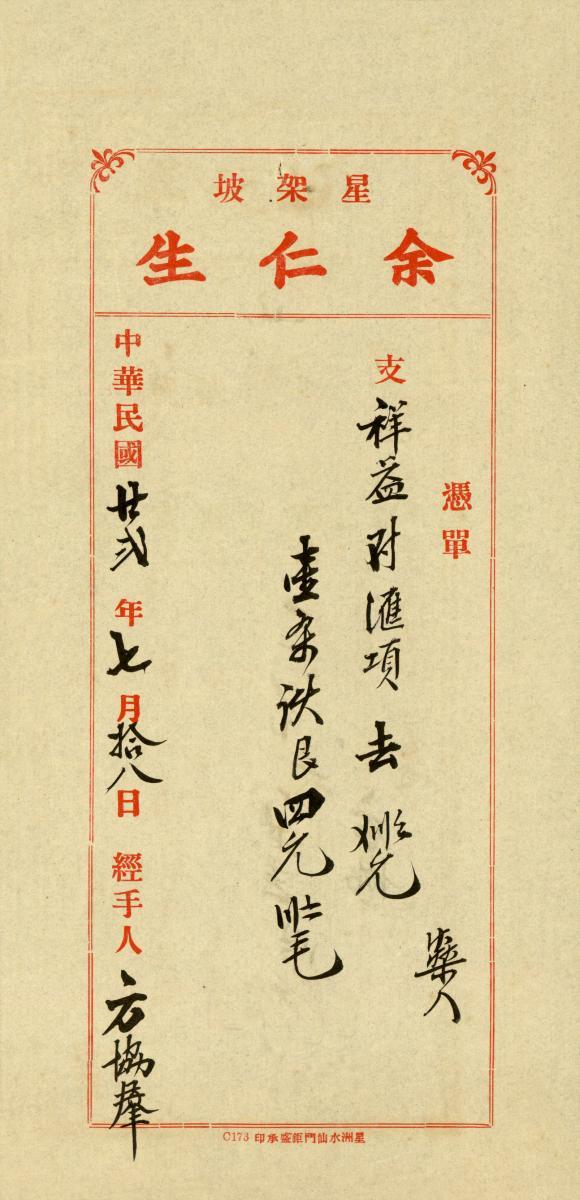 星架坡
余仁生
憑單
支祥益附滙項去
壹条伏艮四元
中華民國廿弍年七月拾八日 經手人方協群
星洲水仙門鉅盛承印 C173